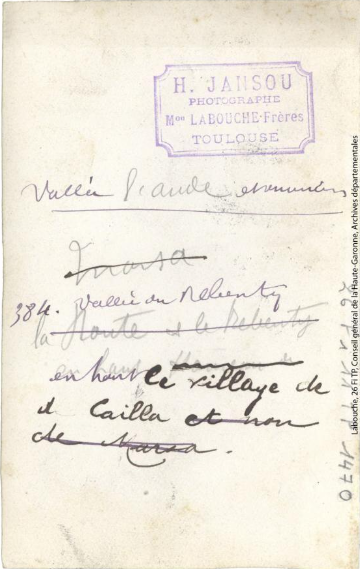 H. JANSOU
PHOTOGRAPHE
Mon LABOUCHE-Frères
TOULOUSE
Vallée l'aude et
Marsa
384. Vallée du Rebenty
la Route et le Rebenty
en haut
en haut le village de
Cailla et non
de Marsa.
26 Fi TP 1470
Labouche, 26 Fi TP, Conseil général de la Haute-Garonne, Archives départementales